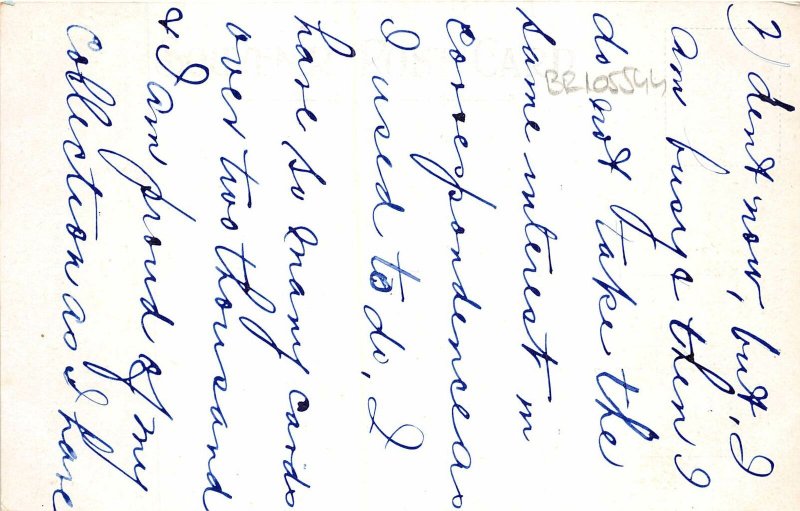 2) dent now, but, I
am busy & then I
do not take the
same interest in
correspondence as
I used to do, I
have so many cards
over two thousand
& I am proud of my
collection as I have
BR105544